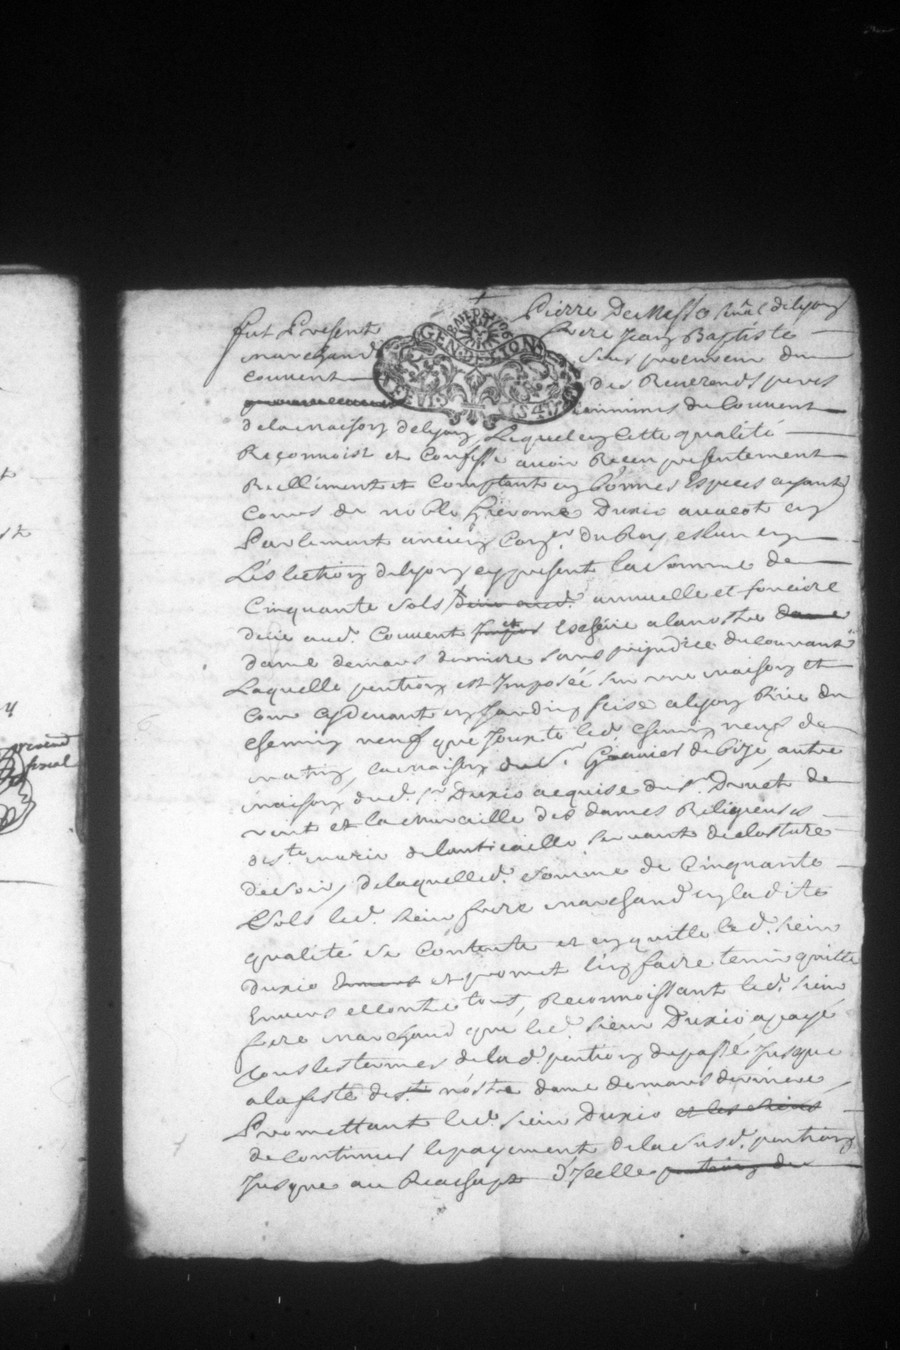 Pierre De Messo de lyon
fut Present frere Jean Baptiste
marchand sous procureur du
couvent des Reverends peres
GEN. DE LYON
minimes du Couvent
de la maison de lyon, Lequel en Cette qualité
Reconnoist et Confesse avoir Receu presentement
Reellement et Comptant en bonnes Especes ayant
Cours de noble hierome Duxio avocat en
Parlement ancien Con.er du Roy eslu en
L'eslection de lyon cy present la somme de
Cinquante sols annuelle et fonciere
deüe aud. Couvent Escheüe a la nostre dame
dame de mars derniere sans prejudice du courant
Laquelle pention est Imposeé sur une maison et
Cour cy devant en Jardin scise a lyon Rüe du
Chemin neuf que Jouxte led. Chemin neuf de
matin, la maison du s.r de bize, autre
maison dud. s.r Duxio acquise du s.r Drouet de
vent et la muraille des dames Religieuses
de s.te marie de lanticaille servant de closture
de soir, de laquelled. somme de Cinquante
Sols led. sieur frere marchand en la dite
qualité se Contente et en quitte le d. sieur
duxio Envers et promet l'en faire tenir quitte
Envers et contre tous, Reconnoissant led. sieur
frere marchand que led. sieur Duxio a payé
tous les termes de la d. pention du passé Jusque
a la feste de nostre dame de mars derniere
Promettant led. sieur Duxio et les siens
de Continuer le payement de la susd. pention
Jusque au Reachapt d'Icelle pention de